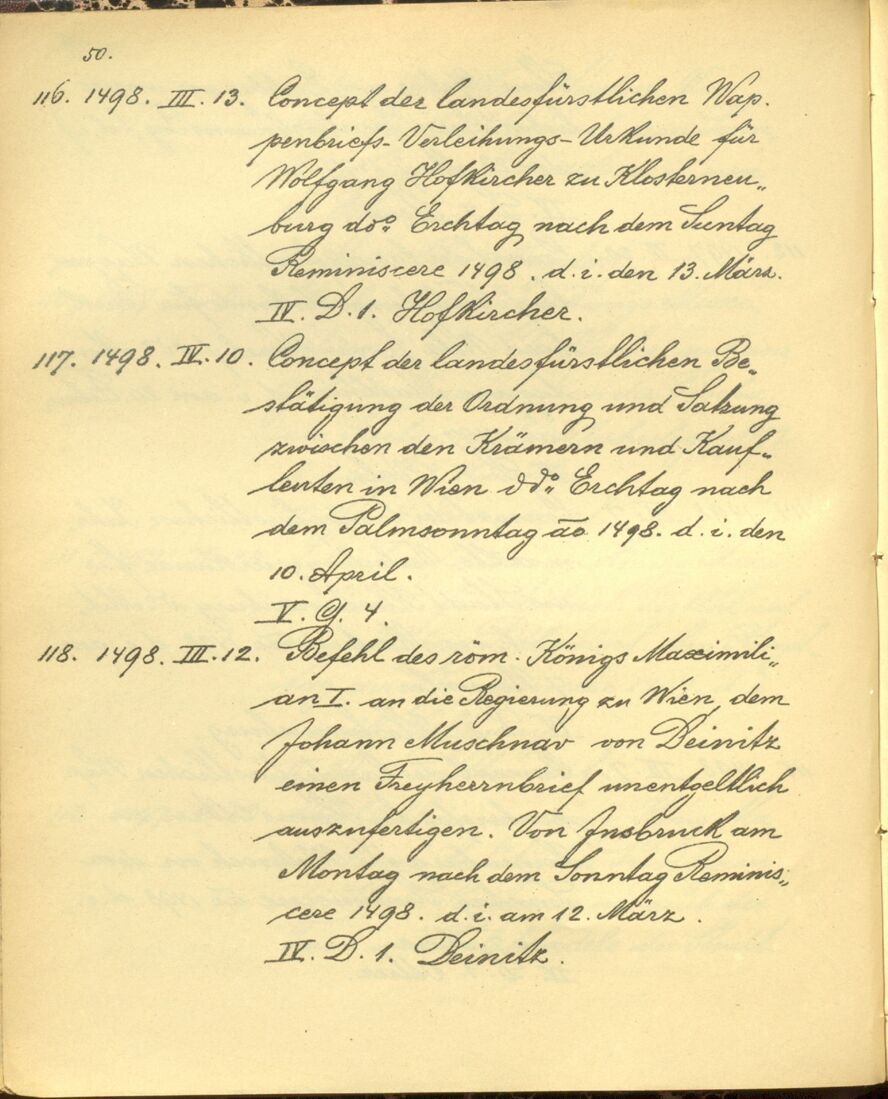 50.
116. 1498. III. 13. Concept der landesfürstlichen Wap-
penbriefs-Verleihungs-Urkunde für
Wolfgang Hofkircher zu Klosterneu„
burg ddo: Erchtag nach dem Suntag
Reminiscere 1498. d. i. den 13. März.
IV. D. 1. Hofkircher.
117. 1498. IV. 10. Concept der landesfürstlichen Be„
stätigung der Ordnung und Satzung
zwischen den Krämern und Kauf„
leuten in Wien ddo: Erchtag nach
dem Palmsonntag ao 1498. d. i. den
10. April.
V. G. 4.
118. 1498. III. 12. Befehl des röm. Königs Maximili„
an I. an die Regierung zu Wien, dem
Johann Muschnav von Deinitz
einen Freyherrnbrief unentgeltlich
auszufertigen. Von Insbruck am
Montag nach dem Sonntag Reminis„
cere 1498. d. i. am 12. März.
IV. D. 1. Deinitz.